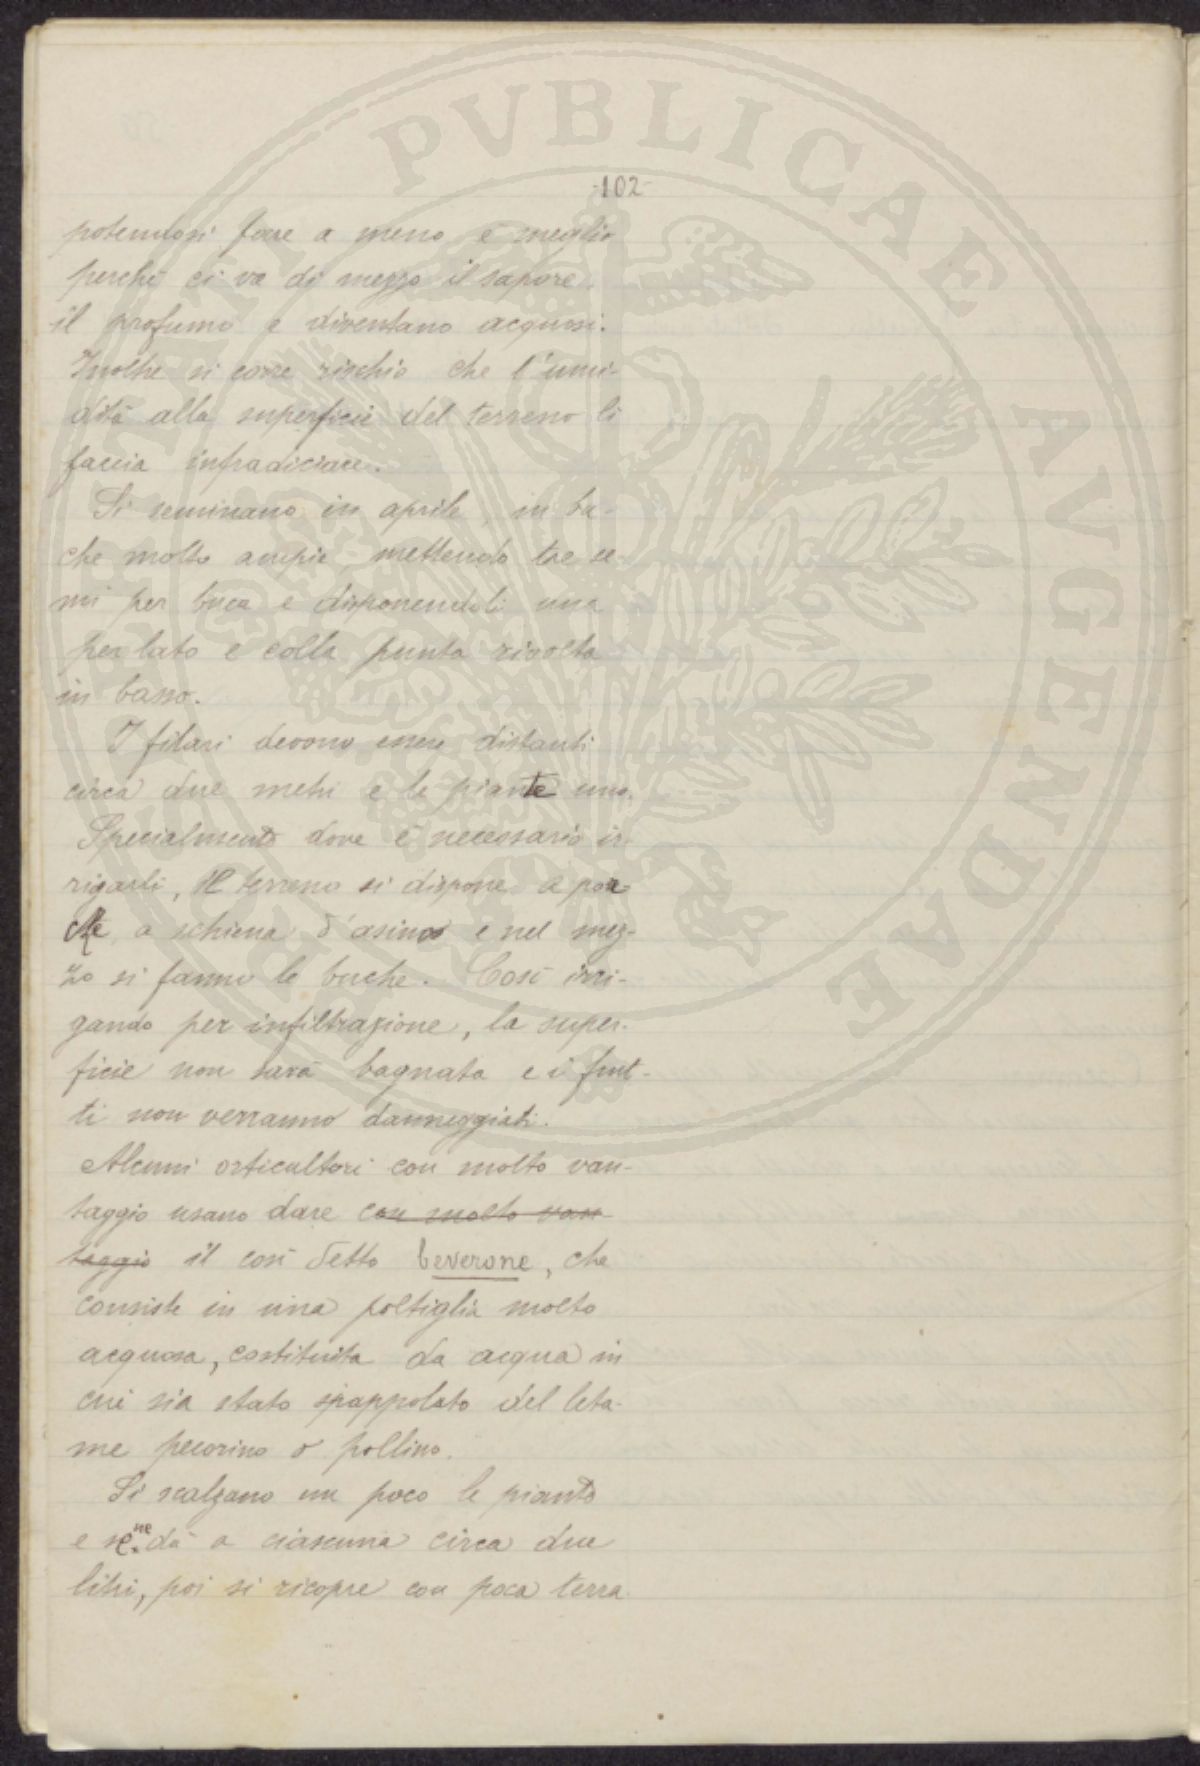 -102-
potendosi fare a meno è meglio
perchè ci va di mezzo il sapore
il profumo e diventano acquosi.
Inoltre si corre rischio che l'umi-
dità alla superficie del terreno li
faccia infradiciare.
Si seminano in aprile, in bu-
che molto ampie, mettendo tre se-
mi per buca e disponendoli una
per lato e colla punta rivolta
in basso.
I filari devono essere distanti
circa due metri e le piante uno.
Specialmente dove è necessario ir-
rigarli, il terreno si dispone a por
che, a schiena d'asino e nel mez-
zo si fanno le buche. Così irri-
gando per infiltrazione, la super-
ficie non sarà bagnata e i frut-
ti non verranno danneggiati.
Alcuni orticultori con molto van-
taggio usano dare con molto van-
taggio il così detto beverone, che
consiste in una poltiglia molto
acquosa, costituita da acqua in
cui sia stato spappolato del leta-
me pecorino o pollino.
Si scalzano un poco le piante
e se ne dà a ciascuna circa due
litri, poi si ricopre con poca terra
PVBLICAE AVGENDAE